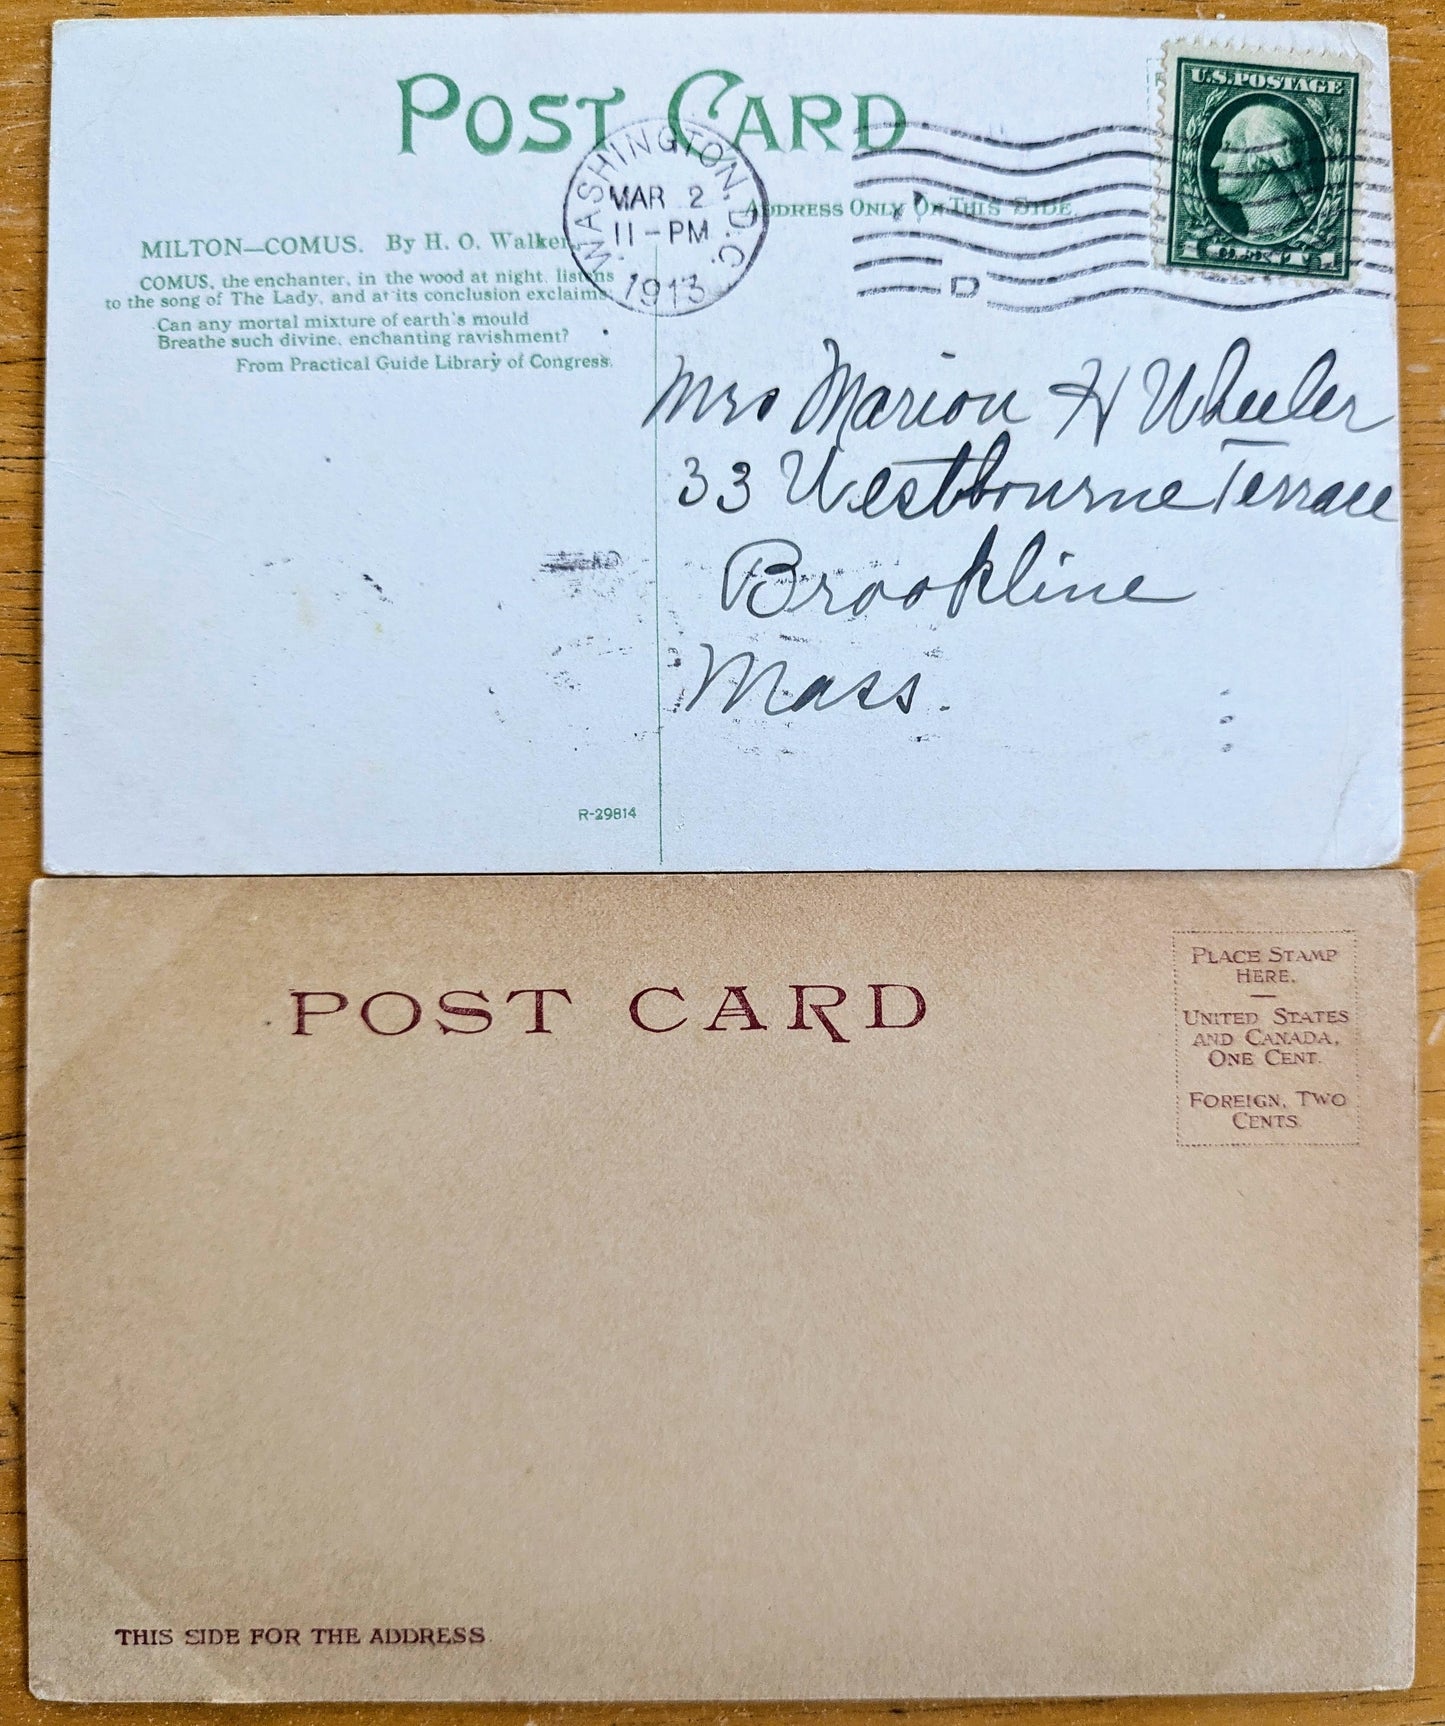 POST CARD
U.S. POSTAGE
WASHINGTON, D.C.
MAR 2
11-PM
1913
ADDRESS ONLY ON THIS SIDE
D
MILTON—COMUS. By H. O. Walker.
COMUS, the enchanter, in the wood at night, listens
to the song of The Lady, and at its conclusion exclaims:
Can any mortal mixture of earth's mould
Breathe such divine, enchanting ravishment?
From Practical Guide Library of Congress.
Mrs Marion H Wheeler
33 Westbourne Terrace
Brookline
Mass.
R-29814
POST CARD
PLACE STAMP
HERE.
—
UNITED STATES
AND CANADA,
ONE CENT.
FOREIGN, TWO
CENTS.
THIS SIDE FOR THE ADDRESS